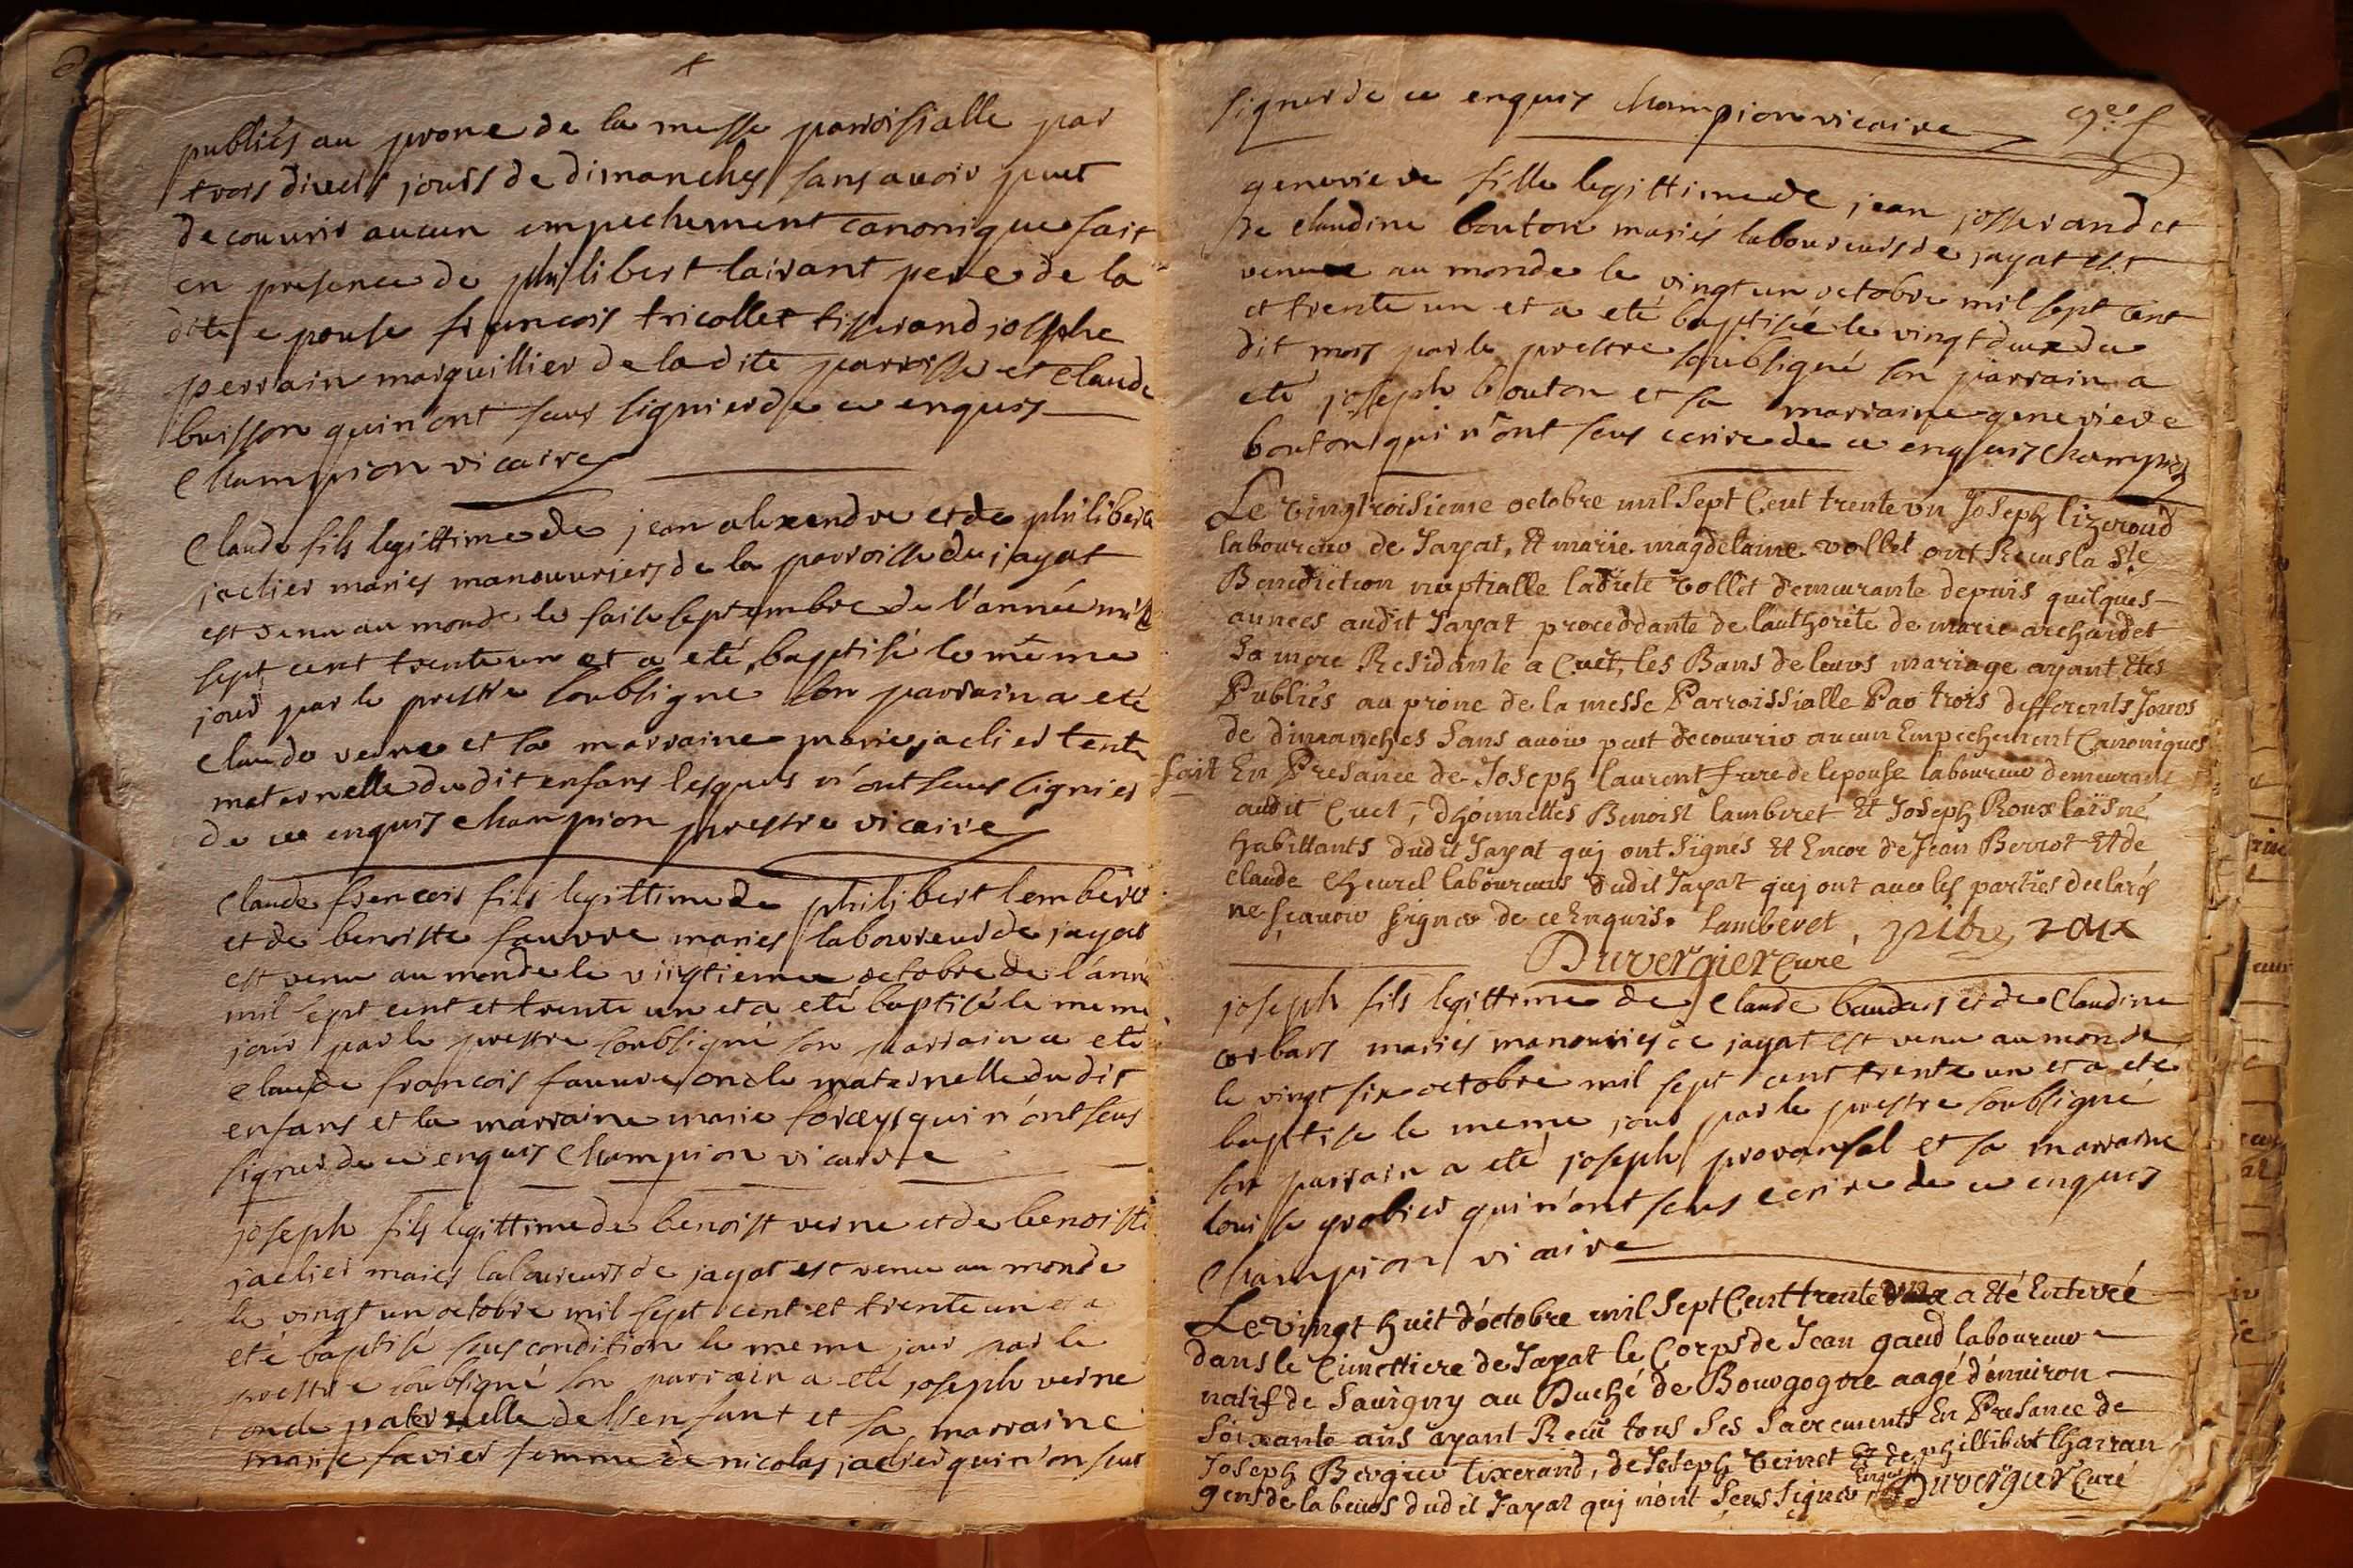 publiés au prone de la messe parroissialle par
trois divers jours de dimanches sans avoir peut
decouvrir aucun empechement canonique fait
en presence de philibert lairant pere de la
dite epouse francois tricollet tisserand josephe
perrain marguillier de la dite parroisse et Claude
buisson qui n'ont sceus signier de ce enquis
Champion vicaire
Claude fils legittime de jean alexendre et de philiberte
jaclier mariés manouvriers de la parroisse du jayat
est venu au monde le saise septembre de l'année mil
sept cent trente un et a eté baptisé le même
jour par le prestre soubsigné son parrain a eté
Claude verne et sa marraine marie jaclier tente
maternelle du dit enfans lesquels n'ont sceus signier
de ce enquis Champion prestre vicaire
Claude francois fils legittime de philibert lemberet
et de benoiste fauvre mariés laboureur de jayat
est venu au monde le vingtieme octobre de l'année
mil sept cent et trente un et a eté baptisé le meme
jour par le prestre soubsigné son parrain a eté
Claude francois fauvre oncle maternelle du dit
enfans et la marraine marie qui n'ont sceus
signer de ce enquis Champion vicaire
joseph fils legittime de benoist verne et de benoiste
jaclier mariés laboureurs de jayat est venu au monde
le vingt un octobre mil sept cent et trente un et a
eté baptisé sous condition le meme jour par le
prestre soubsigné son parrain a eté joseph verne
oncle paternelle de l'enfant et sa marraine
marie favier femme de nicolas jaclier qui n'on sceut
signer de ce enquis Champion vicaire
genevieve fille legittime de jean josserand et
de Claudine bouton mariés laboureurs de jayat est
venue au monde le vingt un octobre mil sept cent
et trente un et a eté baptisée le vingt deux du
dit mois par le prestre soubsigné son parrain a
eté joseph bouton et sa marraine genevieve
bouton qui n'ont sceus ecrire de ce enquis Champion
Le vingtroisieme octobre mil Sept Cent trente un Joseph lizeroud
laboureur de Jayat, Et marie magdelaine vollet ont Recus la Ste
Benediction nuptialle ladiete vollet demeurante depuis quelques
années audit Jayat proceddante de l'authorité de marie archardet
Sa mere Residante a Cuet, les Bans de leurs mariage ayant Etes
Publiés au prône de la messe Parroissialle Par trois defferents Jours
de dimanches Sans avoir peut decouvrir aucun Empechement Canoniques
fait En Presance de Joseph laurent frere de lepouse laboureur demeurant
audit Cuet, d'honnettes Benoist lamberet Et Joseph Roux laisné
habittants dudit Jayat qui ont Signés Et Encor de Jean Berrot Et de
Claude Cheurel laboureurs dudit Jayat qui ont avec les parties declaré
ne sçavoir signer de ce Enquis. Lamberet roux
Duvergier Curé
joseph fils legittime de Claude baudet et de Claudine
corbars mariés manouvriés de jayat est venu au monde
le vingt six octobre mil sept cent trente un et a eté
baptise le meme jour par le prestre soubsigné
son parrain a eté joseph provansal et sa marraine
louise grobier qui n'ont sceus ecrire de ce enquis
Champion vicaire
Le vingt huit d'octobre mil Sept Cent trente un a Eté Enterré
dans le Cimettiere de Jayat le Corps de Jean gaud laboureur
natif de Savigny au Duché de Bourgogne aagé d'environ
Soixante ans ayant Recu tous Ses Sacrements En Presance de
Joseph Bergier tixerand, de Joseph Veinet Et de phillibert Charran
gens de labeurs dudit Jayat qui n'ont Sceus Signer Enquis Duvergier Curé